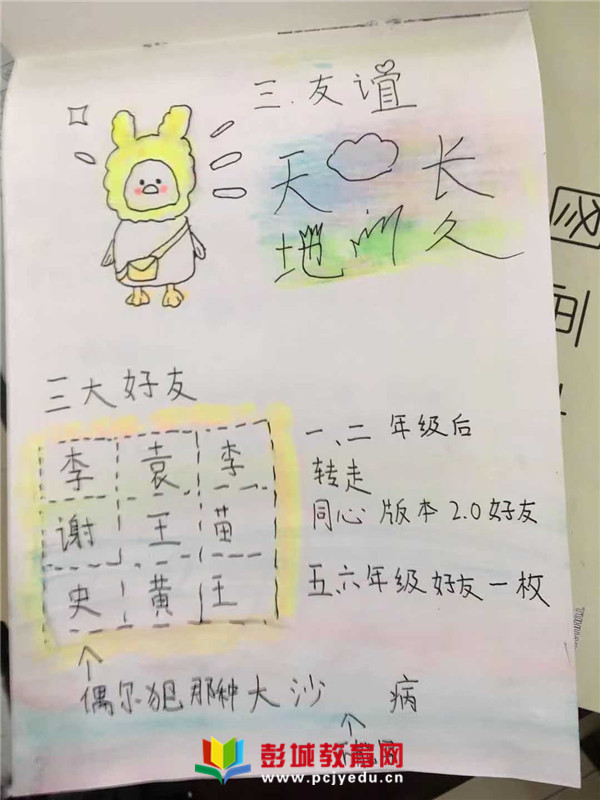 三.友谊
天 长
地 久
三大好友
李 袁 李
谢 王 苗
史 黄 王
一、二年级后
转走
同心版本2.0好友
五.六年级好友一枚
偶尔犯那种大沙 病
彭城教育网
www.pcjyedu.cn